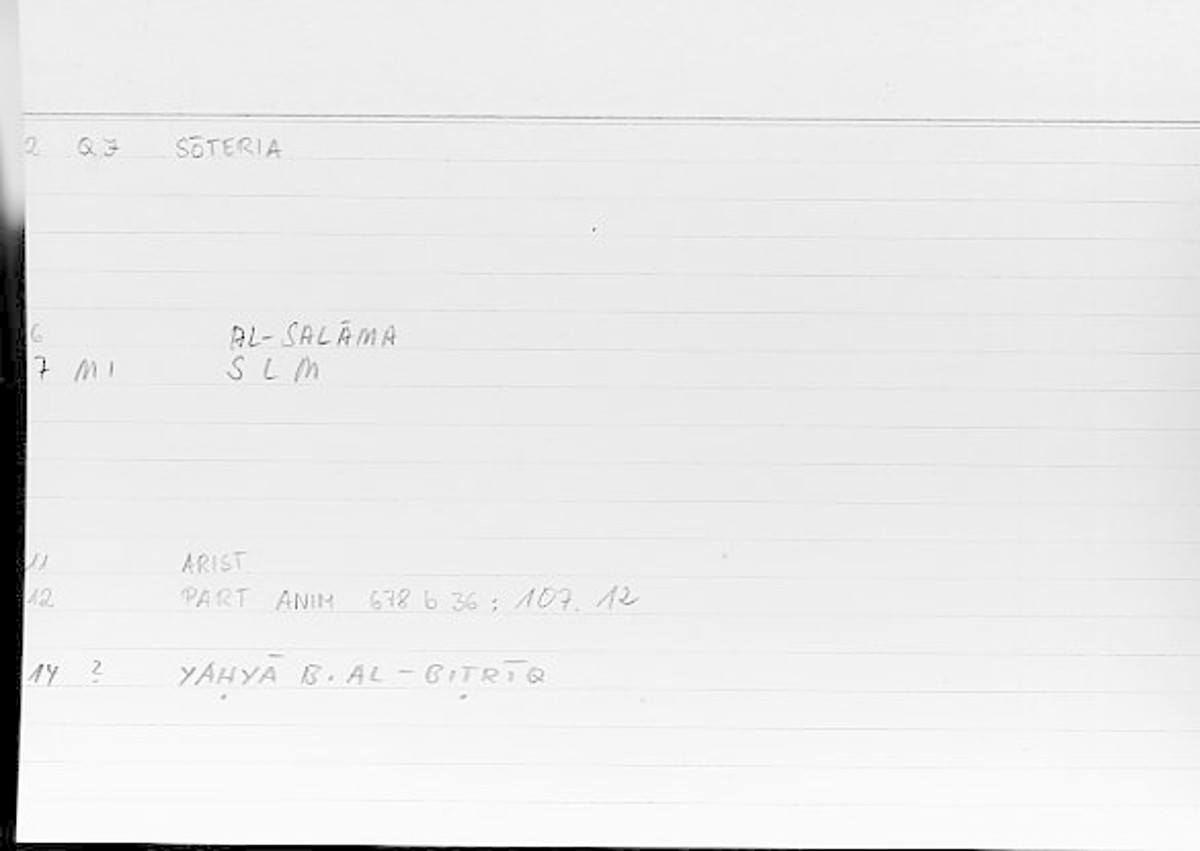 2 Q7 SŌTERIA
6 AL-SALĀMA
7 M1 S L M
11 ARIST
12 PART ANIM 678 b 36 : 107. 12
14 ? YAḤYĀ B. AL-BIṬRĪQ